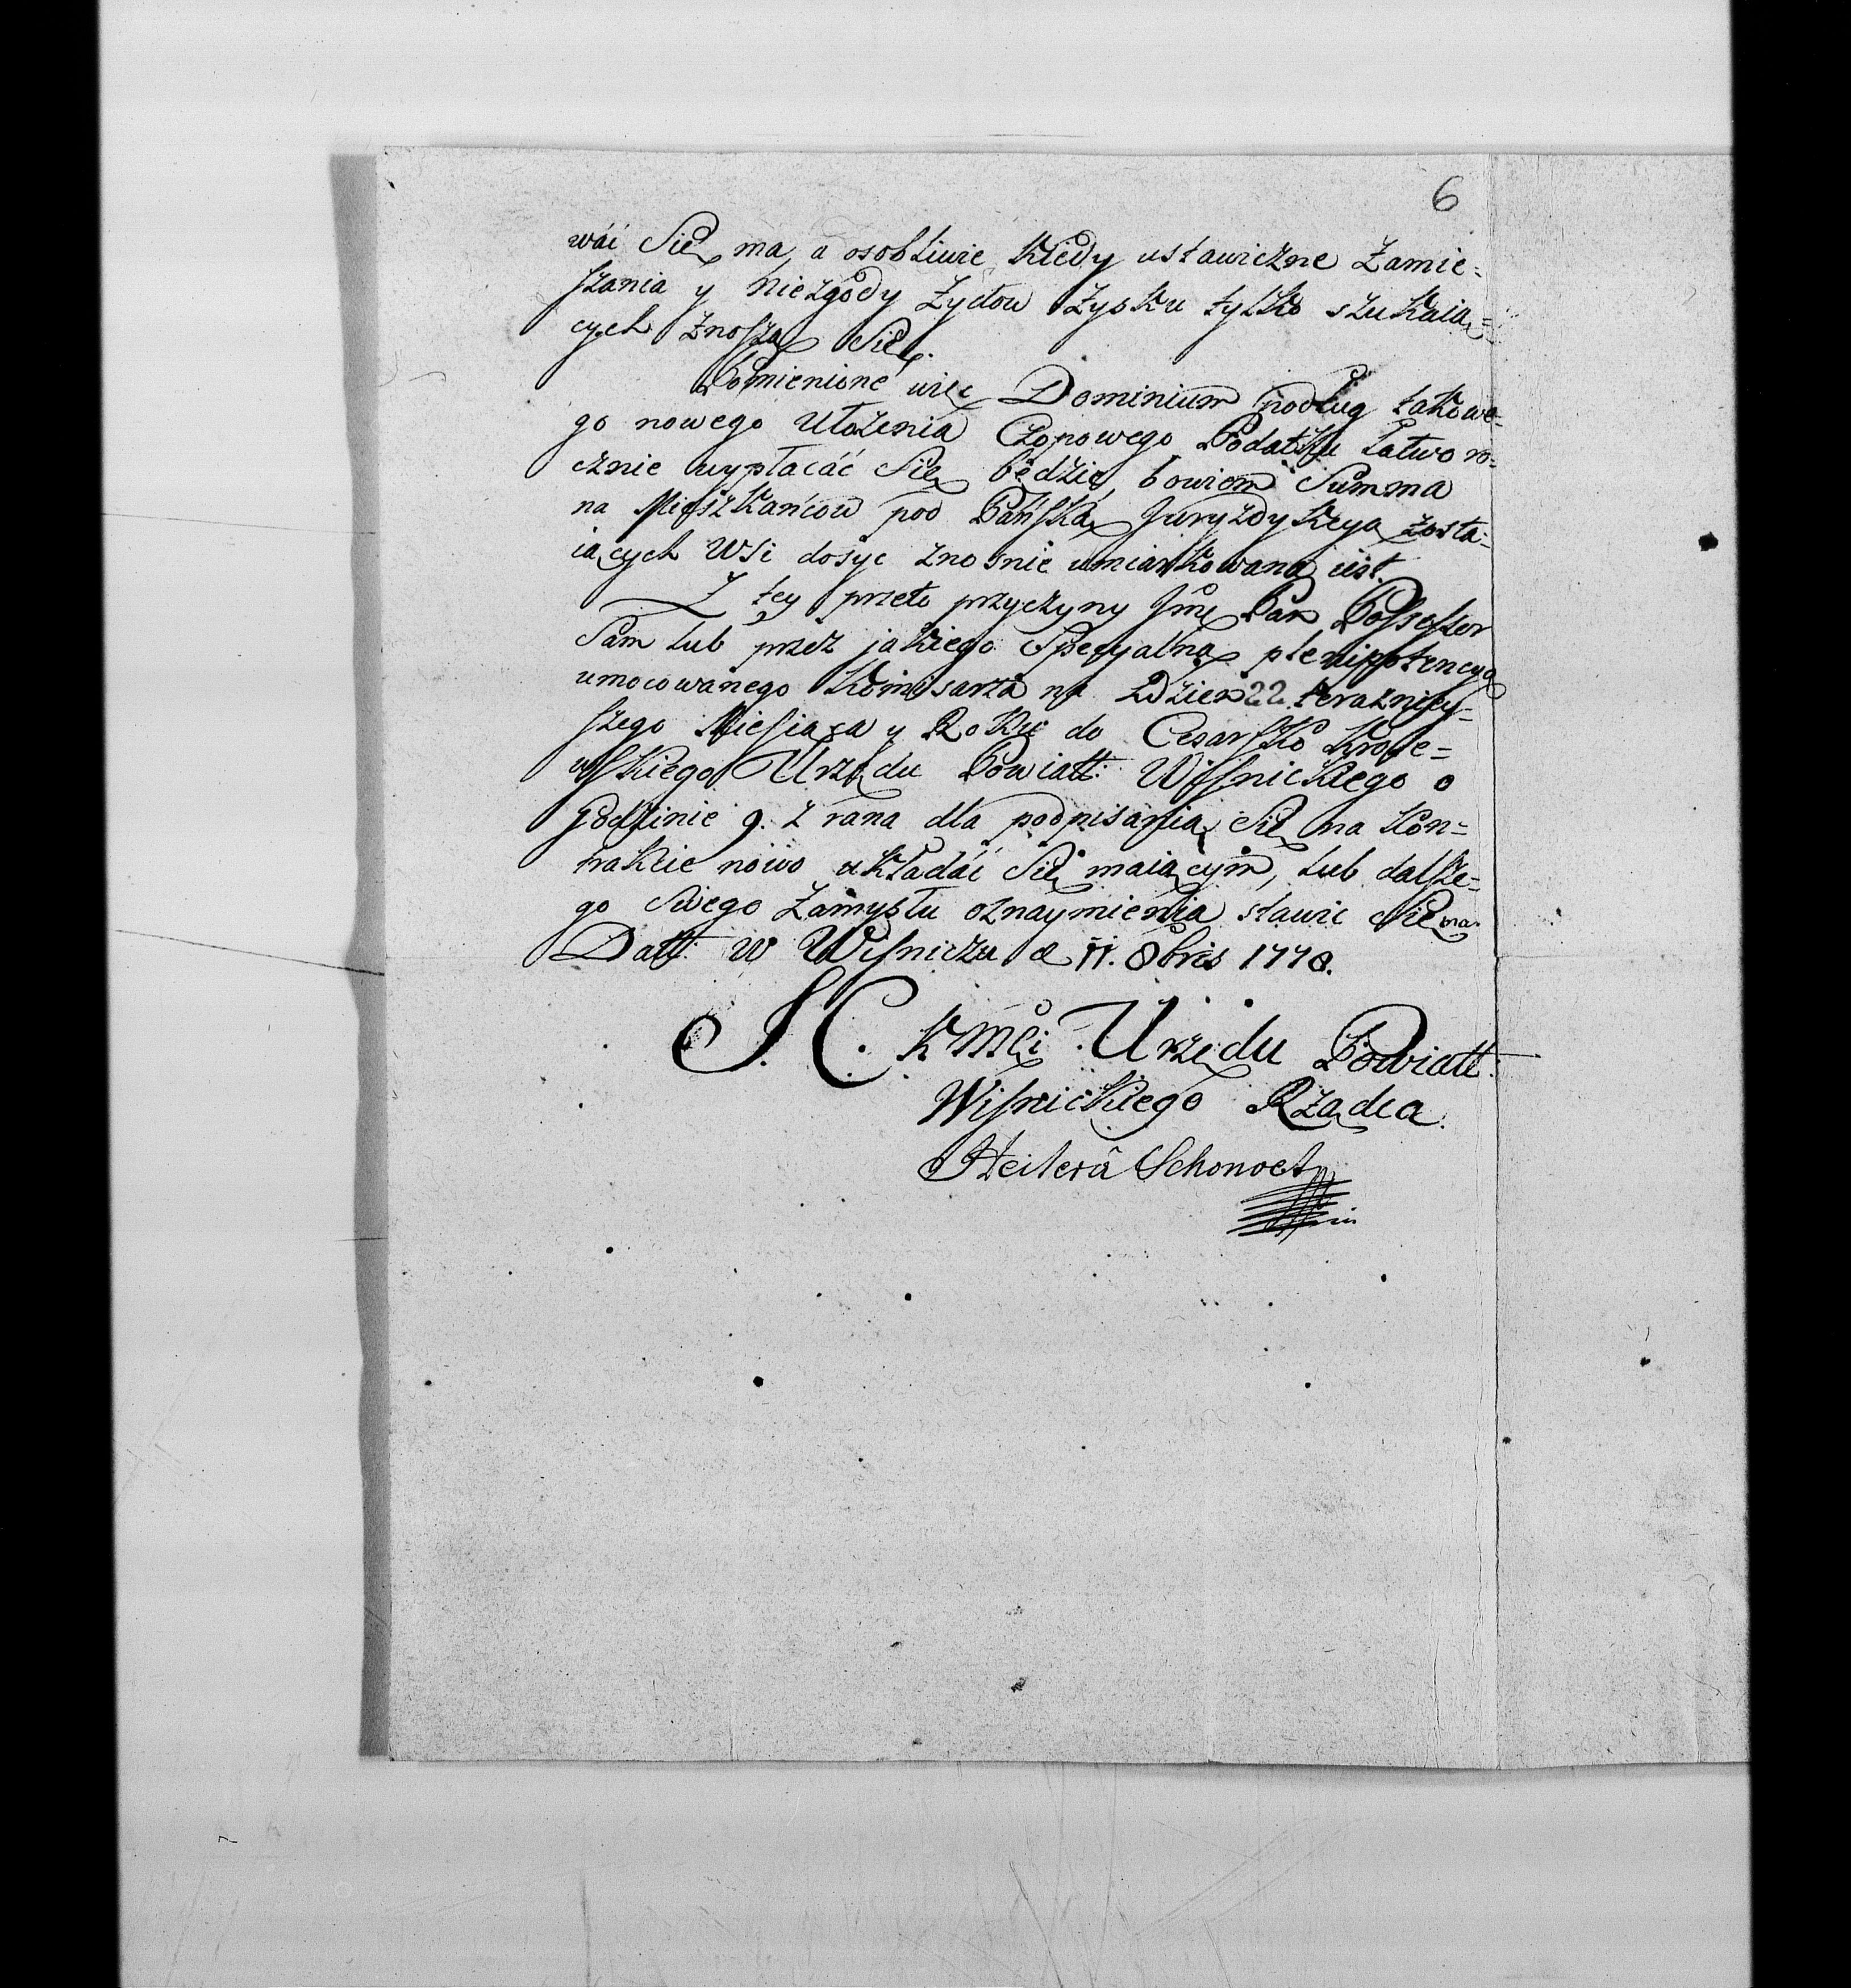 6
wác Się ma, a osobliwie Kiedy ustawiczne Zamie=
szania y Niezgody Zydow Zysku tylko szukaią=
cych znoszą Się.
Pomienione więc Dominium podług takowe=
go nowego Ułozenia Czopowego Podatku Łatwo ro=
cznie wypłacáć Się będzie, bowiem Summa
na Mieszkańcow pod Pańską Juryzdykcyą zosta=
iących Wsi dosyc znosnie umiarkowana iest.
Z tey przeto przyczyny Jmć Pan Possessor
Sam lub przez jakiego Specyalną plenipotencyą
umocowanego Komisarza na Dzien 22 terazniey=
szego Miesiąca y Roku do Cesarsko Krole=
wskiego Urzędu Powiatt: Wisnickiego o
Godzinie 9. z rana dla podpisania Się na Kon=
trakcie nowo układác Się maiącym, lub dalsze=
go Swego Zamysłu oznaymienia stawic Się ma.
Datt: w Wisniczu d 11. 8bris 1778.
J. C. K Mci Urzędu Powiatt:
Wisnickiego Rządca.